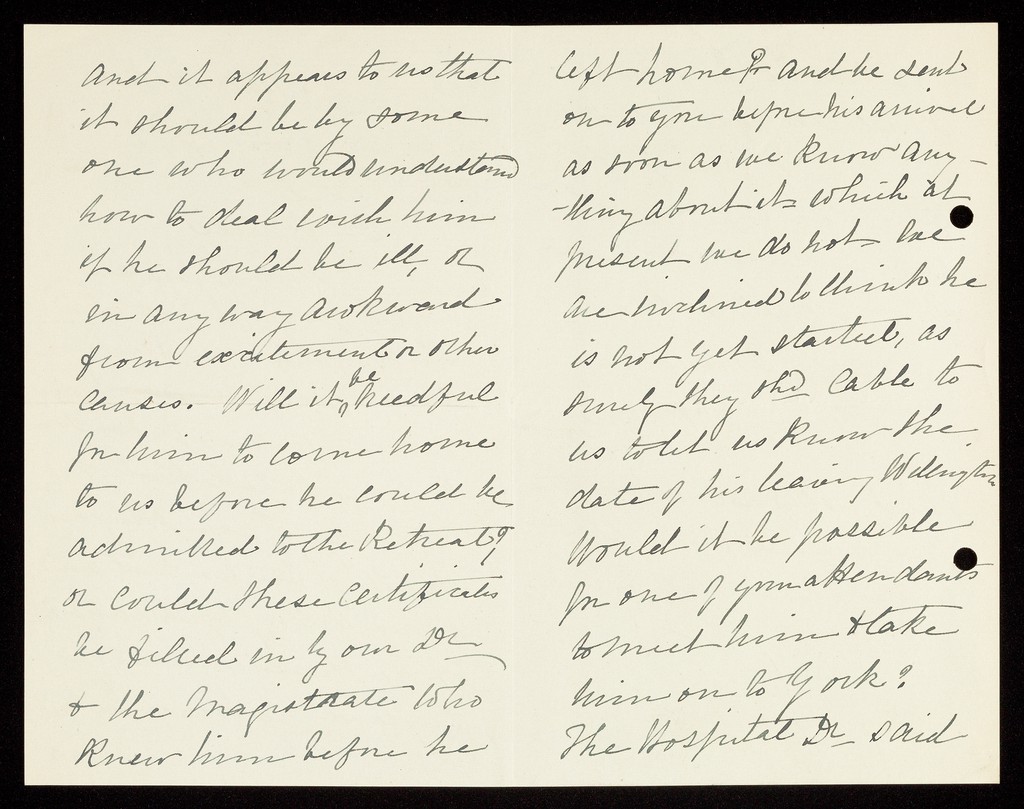 and it appears to us that
it should be by some
one who would understand
how to deal with him
if he should be ill, or
in any way awkward
from excitement or other
causes. Will it be needful
for him to come home
to us before he could be
admitted to the Retreat?
or could these certificates
be filled in by our Dr
& the Magistrate who
knew him before he
left home & and be sent
on to you before his arrival
as soon as we know any-
-thing about it - which at
present we do not - We
are inclined to think he
is not yet started, as
surely they shd cable to
us to let us know the
date of his leaving Wellington
Would it be possible
for one of your attendants
to meet him & take
him on to York?
The Hospital Dr said